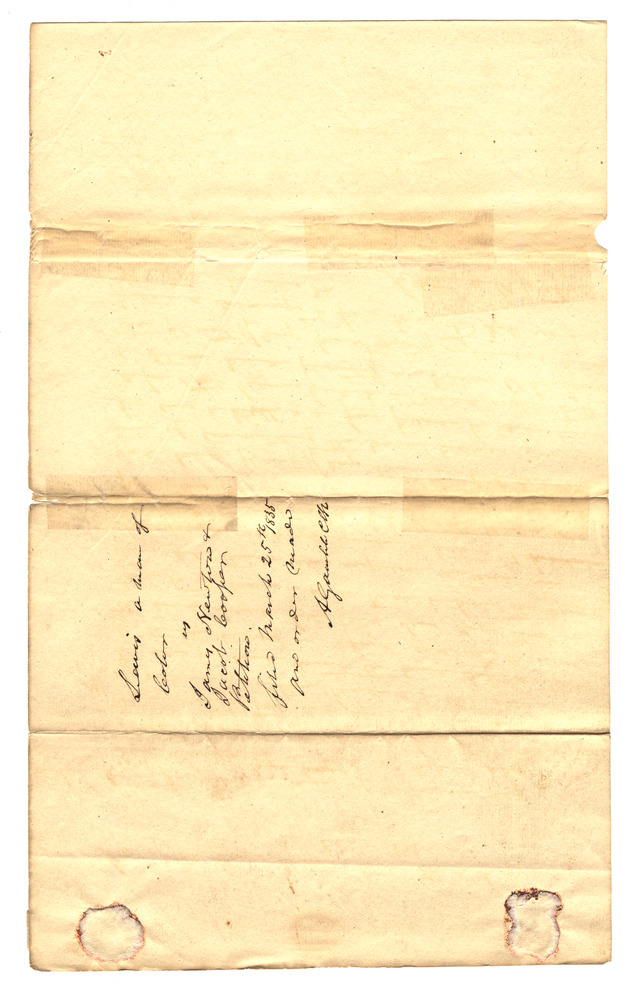 Lewis a man of
Color
vs
James Newton &
Jacob Cooper
Petition
filed March 25th 1835
and order made
A Gamble Clk